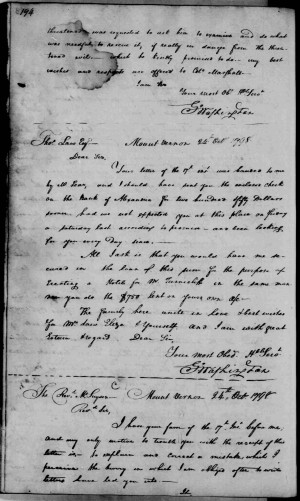 194
requested to ask him to examine and do what
was needful to secure it, if really in danger from the
which he kindly promised to do. my best
wishes and respects are offered to Colo. Marshall.
I am Sir
Your most Obt. Serv
Go Washington
Thos. Law Esqr. Mount Vernon 24th Octr 1798
Dear Sir,
Your letter of the 17 inst. was handed to me
by and I should have sent you the enclosed check
on the Bank of Alexandria for two hundred fifty Dollars
sooner, had we not expected you at this place on friday
& saturday last according to promise – and been looking
for you every day since. —
All I ask is that you would have me se-
cured in the loan of this sum for the purpose of
erecting a Hotel for Mr. in the same man
ner you do the $750 lent on your own
The family here unite in love & best wishes
for Mrs. Law Eliza & Yourself. and I am with great
Esteem & regard Dear Sir,
Your most Obed. Hble Serv
Go Washington
The Revd. Mount Vernon 24th Octr 1798
Revd. Sir,
I have your favor of the 17th inst. before me,
and my only motive to trouble you with the receipt of this
letter is, to explain and correct a mistake which I
perceive the hurry in which I am obliged often to write
letters have led you into —